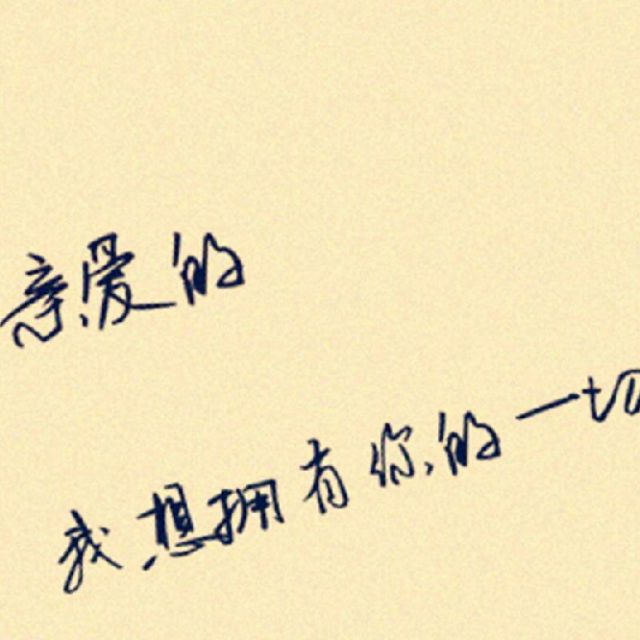 亲爱的
我想拥有你的一切